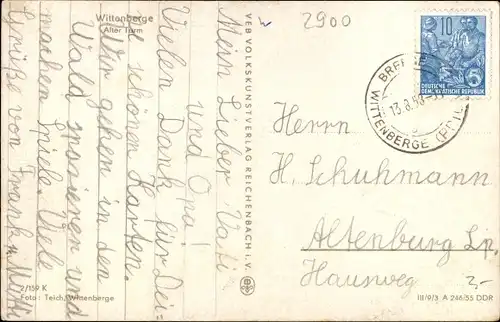 Wittenberge
Alter Turm
Mein Lieber Vati
und Opa!
Vielen Dank für Dei-
ne schönen Karten.
Wir gehen in den
Wald spazieren und
machen Spiele. Viele
Grüße von Frank u. Mutti
2/159 K
Foto: Teich, Wittenberge
VEB VOLKSKUNSTVERLAG REICHENBACH i. V.
2900
10
DEUTSCHE
DEMOKRATISCHE REPUBLIK
WITTENBERGE
Herrn
H. Schuhmann
Altenburg Lp.
Hausweg
2,-
III/9/3 A 246/55 DDR